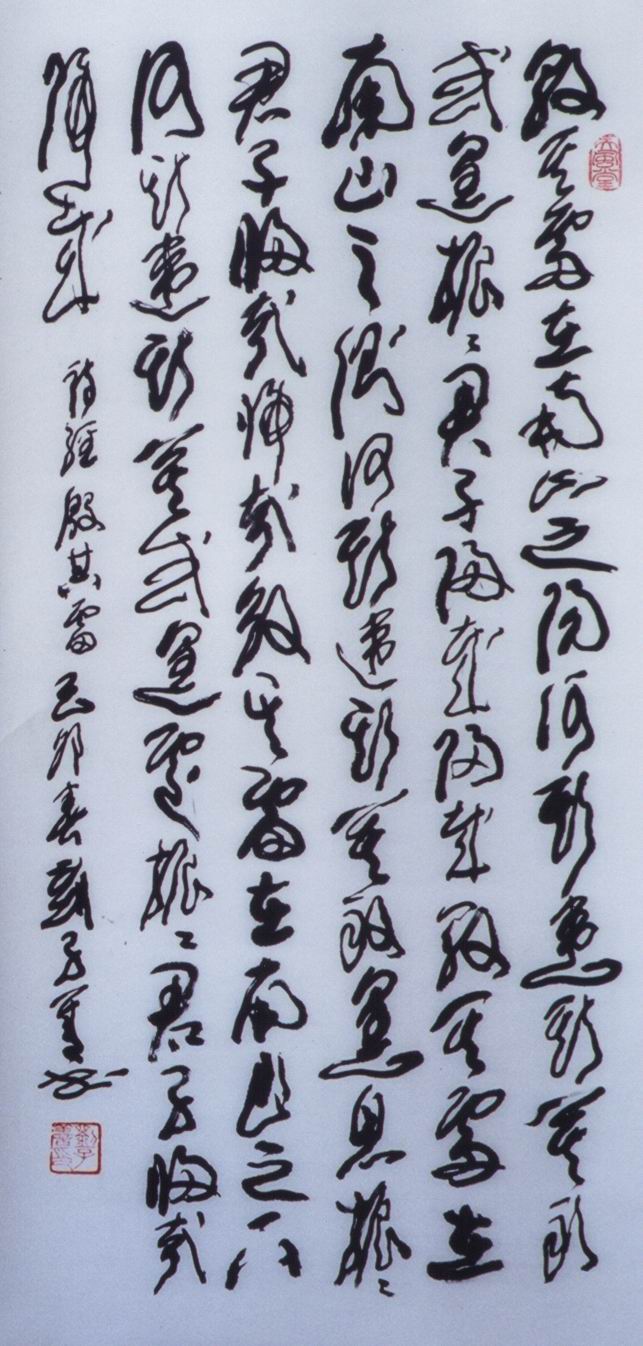 殷其雷在南山之陽何斯違斯莫敢
或遑振〻君子歸哉歸哉殷其雷在
南山之側何斯違斯莫敢遑息振〻
君子歸哉歸哉殷其雷在南山之下
何斯違斯莫或遑處振〻君子歸哉
歸哉 詩經殷其雷己卯春劉子善書